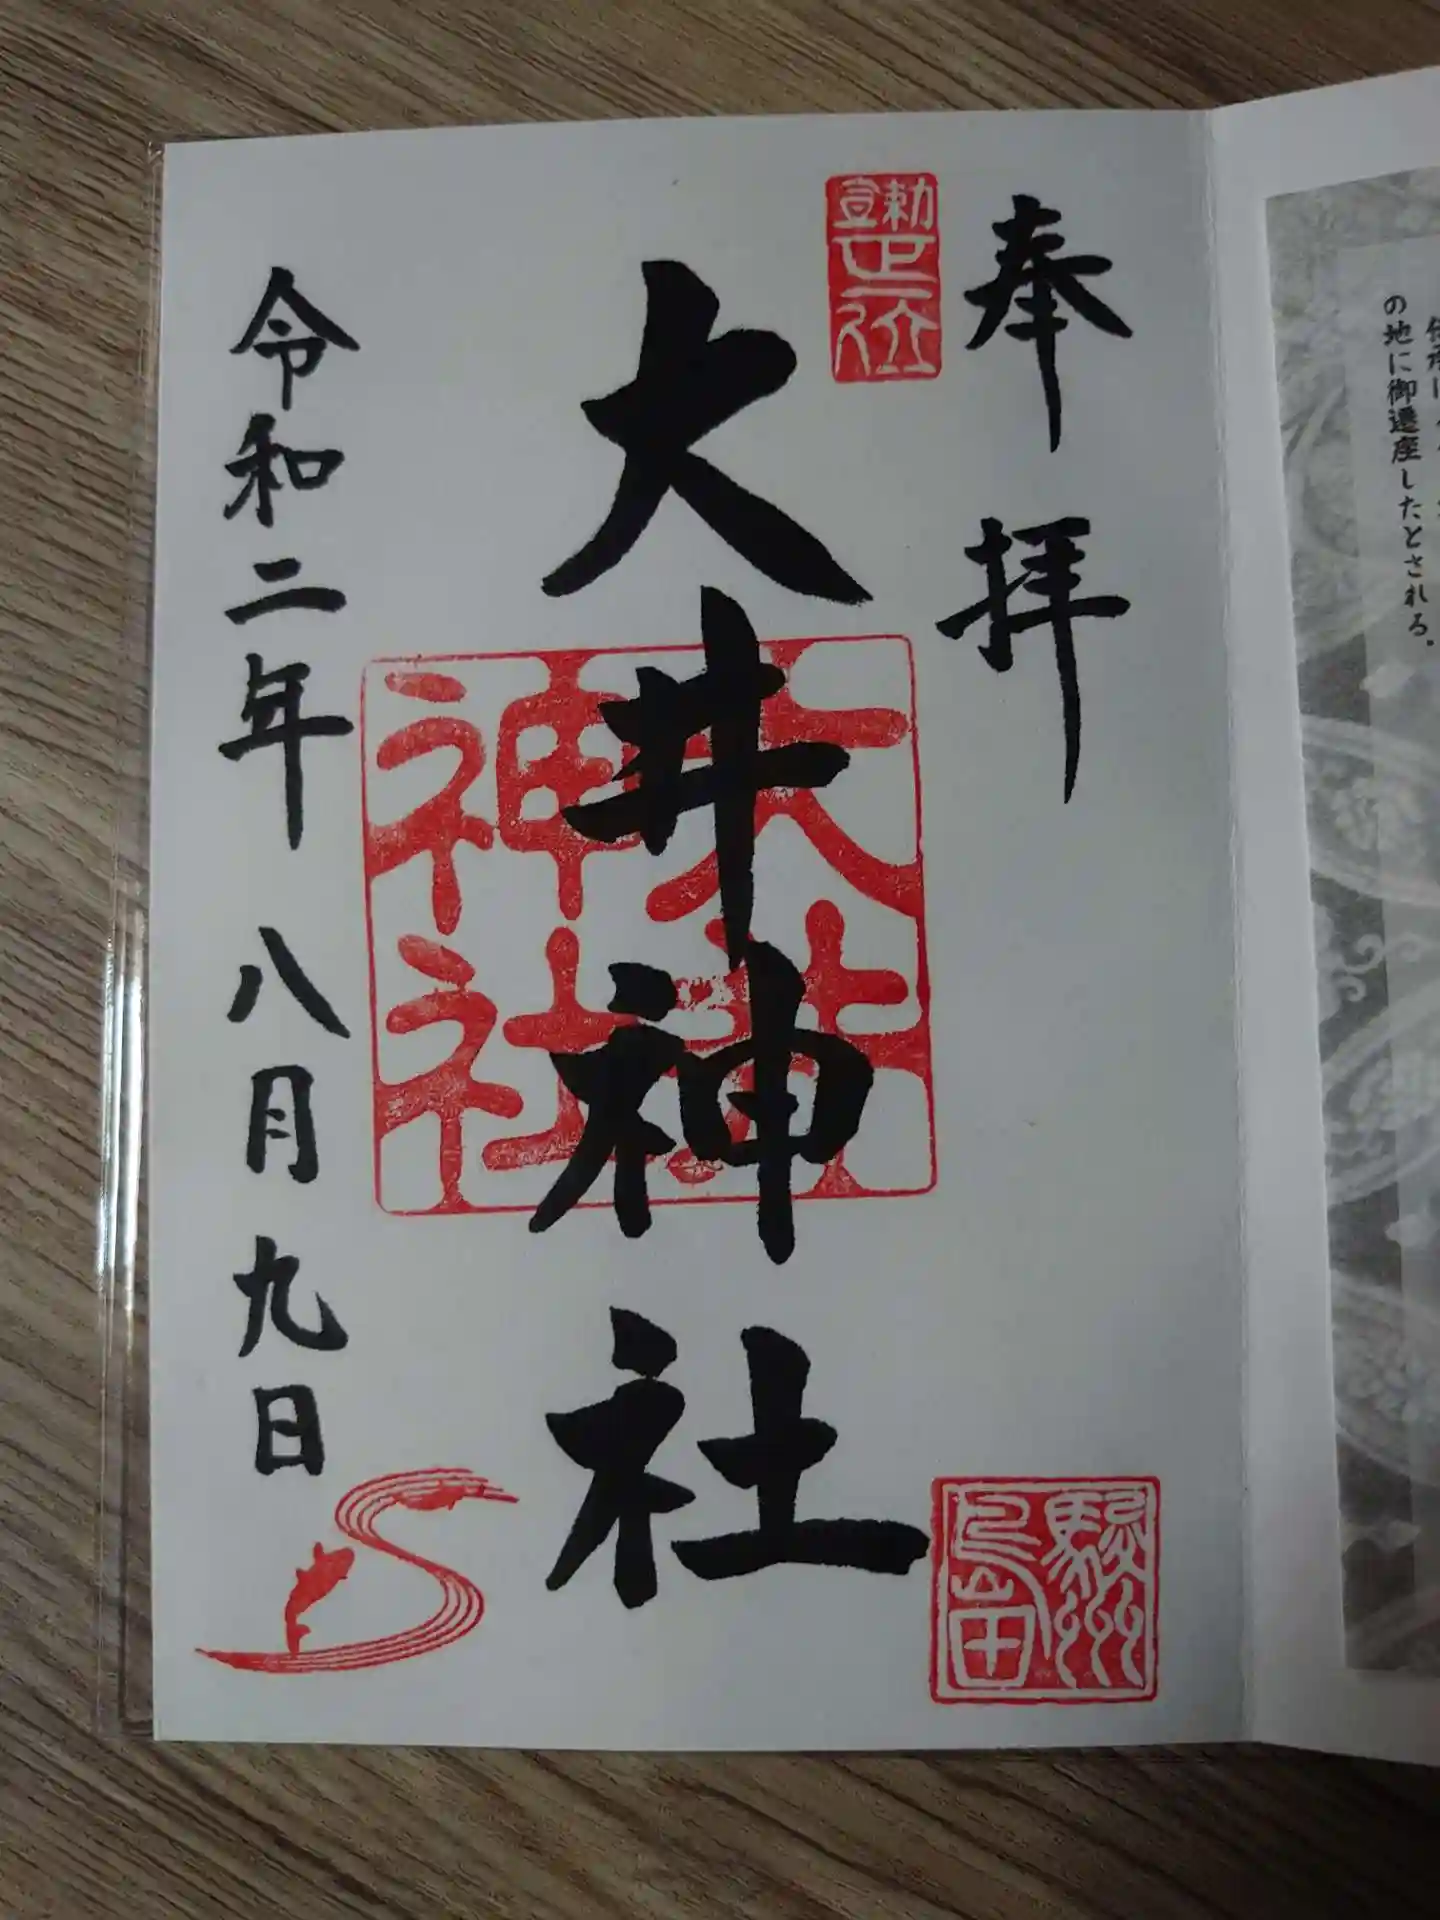 の地に御遷座したとされる。
奉拝
勅宣
正一位
大井神社
大井
神社
駿州
島田
令和二年 八月 九日